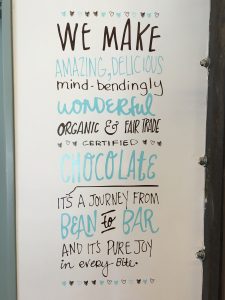 WE MAKE
AMAZING, DELICIOUS
mind-bendingly
wonderful
ORGANIC & FAIR TRADE
CERTIFIED
CHOCOLATE
IT'S A JOURNEY FROM
BEAN to BAR
AND IT'S PURE JOY
in every Bite.